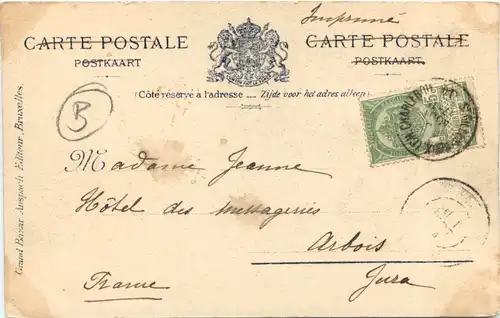 Imprimé
CARTE POSTALE CARTE POSTALE
POSTKAART POSTKAART.
(Côté réservé à l'adresse — Zijde voor het adres alleen)
B
Madame Jeanne
Hôtel des messageries
Arbois
Jura
France
Grand Bazar Anspach Editeur, Bruxelles.